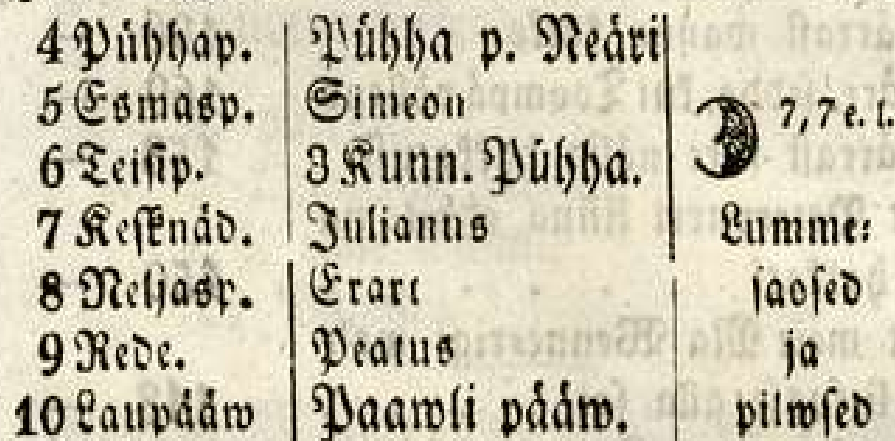 4 Pühhap. Pühha p. Neäri
5 Esmasp. Simeon 7,7 e. l.
6 Teisip. 3 Kunn. Pühha.
7 Keſknäd. Julianus Lumme⸗
8 Neljasp. Erart ſaoſed
9 Rede. Peatus ja
10 Laupääw Paawli pääw. pilwſed